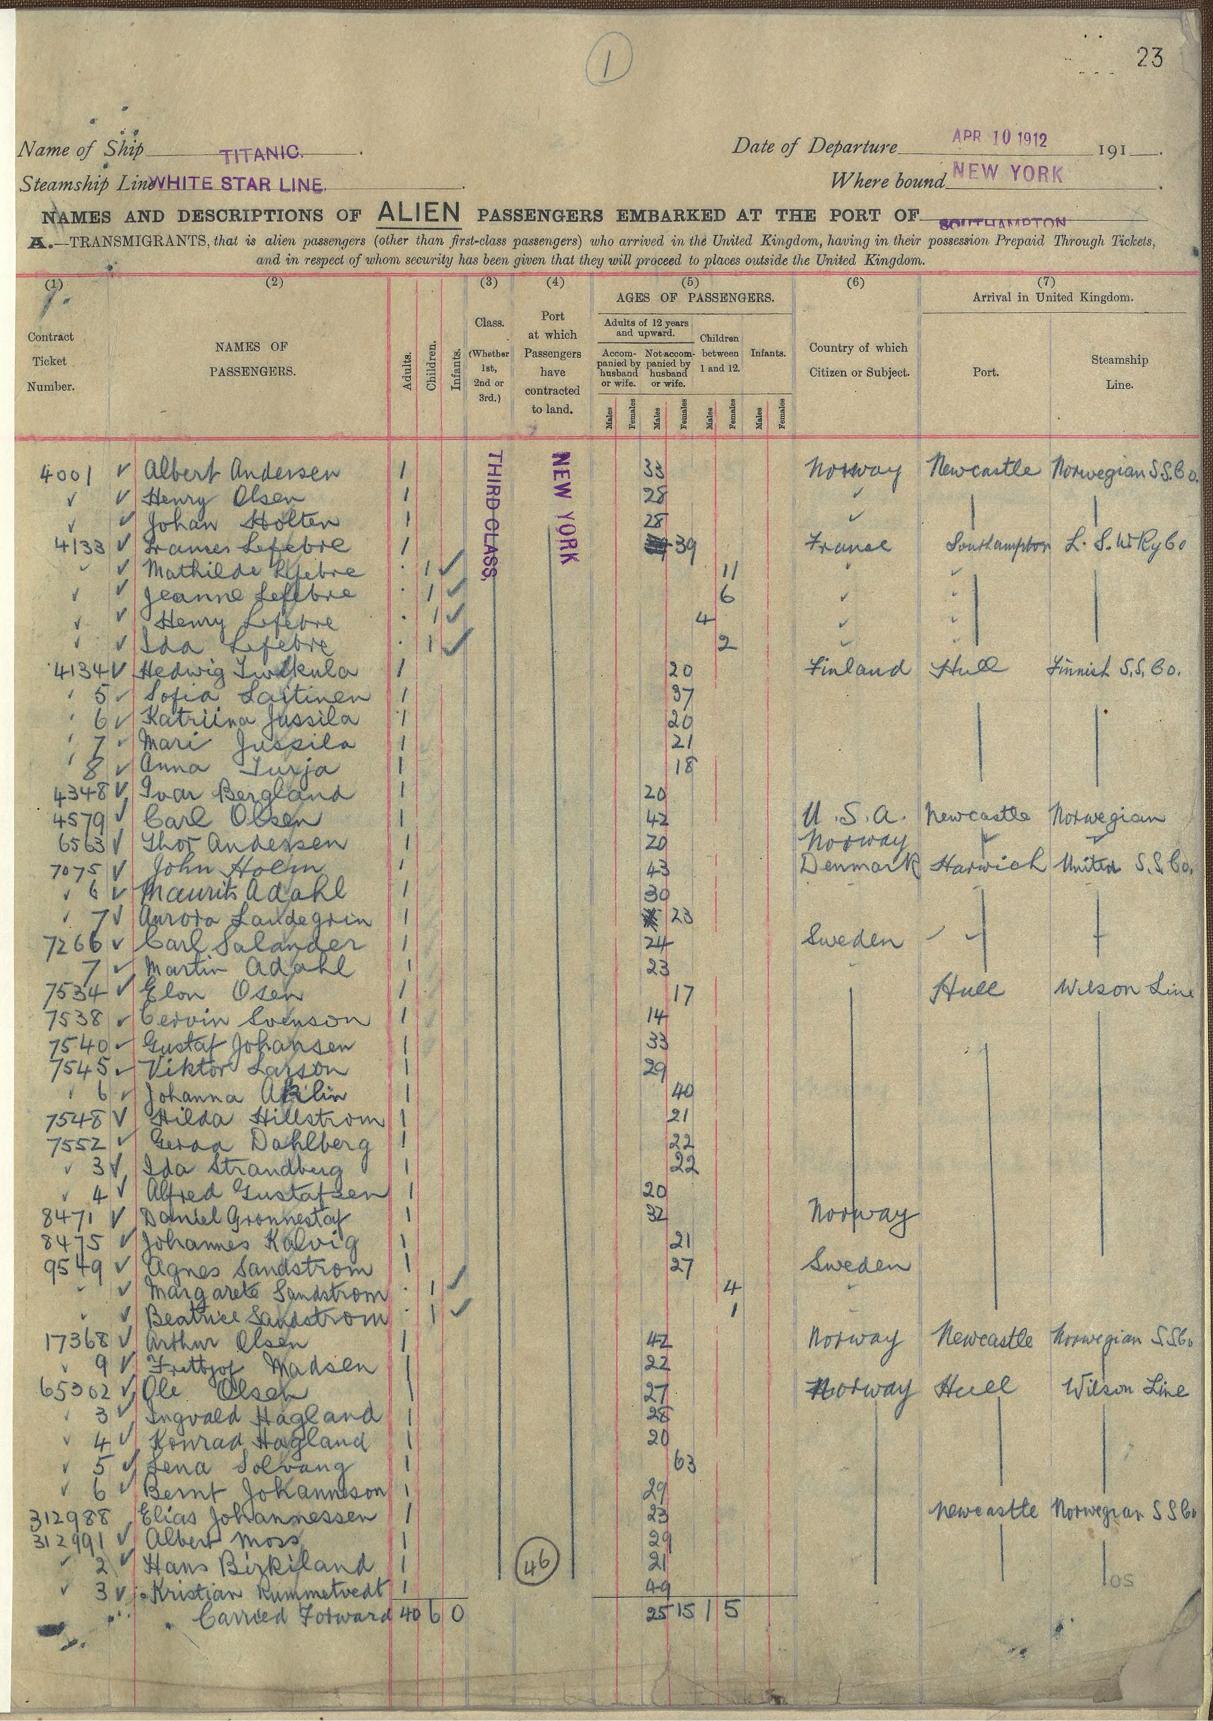 1
23
Name of Ship TITANIC. Date of Departure APR 10 1912 191
Steamship Line WHITE STAR LINE. Where bound NEW YORK
NAMES AND DESCRIPTIONS OF ALIEN PASSENGERS EMBARKED AT THE PORT OF SOUTHAMPTON
A.—TRANSMIGRANTS, that is alien passengers (other than first-class passengers) who arrived in the United Kingdom, having in their possession Prepaid Through Tickets,
and in respect of whom security has been given that they will proceed to places outside the United Kingdom.
(1) (2) (3) (4) (5) (6) (7)
Contract Ticket Number.
NAMES OF PASSENGERS.
Adults. Children. Infants.
Class. (Whether 1st, 2nd or 3rd.)
Port at which Passengers have contracted to land.
AGES OF PASSENGERS.
Adults of 12 years and upward.
Accompanied by husband or wife. Not accompanied by husband or wife.
Children between 1 and 12.
Infants.
Males Females Males Females Males Females Males Females
Country of which Citizen or Subject.
Arrival in United Kingdom.
Port. Steamship Line.
THIRD CLASS.
NEW YORK
4001 ✓ Albert Andersen 1 33 Norway Newcastle Norwegian S.S. Co.
✓ ✓ Henry Olsen 1 28 ✓
✓ ✓ Johan Holten 1 28 ✓
4133 ✓ Frances Lefebre 1 39 France Southampton L. S. W Ry Co
✓ ✓ Mathilde Lefebre 1 ✓ 11
✓ ✓ Jeanne Lefebre 1 ✓ 6
✓ ✓ Henry Lefebre 1 ✓ 4
✓ ✓ Ida Lefebre 1 ✓ 2
4134 ✓ Hedwig 1 20 Finland Hull Finnish S.S. Co.
5 ✓ Sofia Laitinen 1 37
6 ✓ Katriina Jussila 1 20
7 ✓ Mari Jussila 1 21
8 ✓ Anna Turja 1 18
4348 ✓ Ivar Bergland 1 20
4579 ✓ Carl Olsen 1 42 U.S.A. Newcastle Norwegian
6563 ✓ Thor Andersen 1 20 Norway
7075 ✓ John Holm 1 43 Denmark Harwich United S.S. Co.
✓ 6 ✓ Maurits Adahl 1 30
✓ 7 ✓ Aurora Landegrin 1 23
7266 ✓ Carl Salander 1 24 Sweden
7 ✓ Martin Adahl 1 23
7534 ✓ Elon Osen 1 17 Hull Wilson Line
7538 ✓ Cervin Svenson 1 14
7540 ✓ Gustaf Johansen 1 33
7545 ✓ Viktor Larson 1 29
✓ 6 ✓ Johanna 1 40
7548 ✓ Hilda Hillstrom 1 21
7552 ✓ Gerda Dahlberg 1 22
✓ 3 ✓ Ida Strandberg 1 22
✓ 4 ✓ Alfred Gustafsen 1 20
8471 ✓ Daniel Gronnestaf 1 32 Norway
8475 ✓ Johannes Kalvig 1 21
9549 ✓ Agnes Sandstrom 1 27 Sweden
✓ Margarete Sandstrom 1 ✓ 4
✓ Beatrice Sandstrom 1 ✓ 1
17368 ✓ Arthur Olsen 1 42 Norway Newcastle Norwegian S S Co
✓ 9 ✓ Frettjof Madsen 1 22
65302 ✓ Ole Olsen 1 27 Norway Hull Wilson Line
✓ 3 ✓ Ingvald Hagland 1 28
✓ 4 ✓ Konrad Hagland 1 20
✓ 5 ✓ Lena Solvang 1 63
✓ 6 ✓ Bernt Johanneson 1 29
312988 Elias Johannessen 1 23 Newcastle Norwegian S S Co
312991 ✓ Albert Moss 1 29
✓ 2 ✓ Hans Birkiland 1 46 21
✓ 3 ✓ Kristian Rummetvedt 1 49
Carried Forward 40 6 0 25 15 1 5